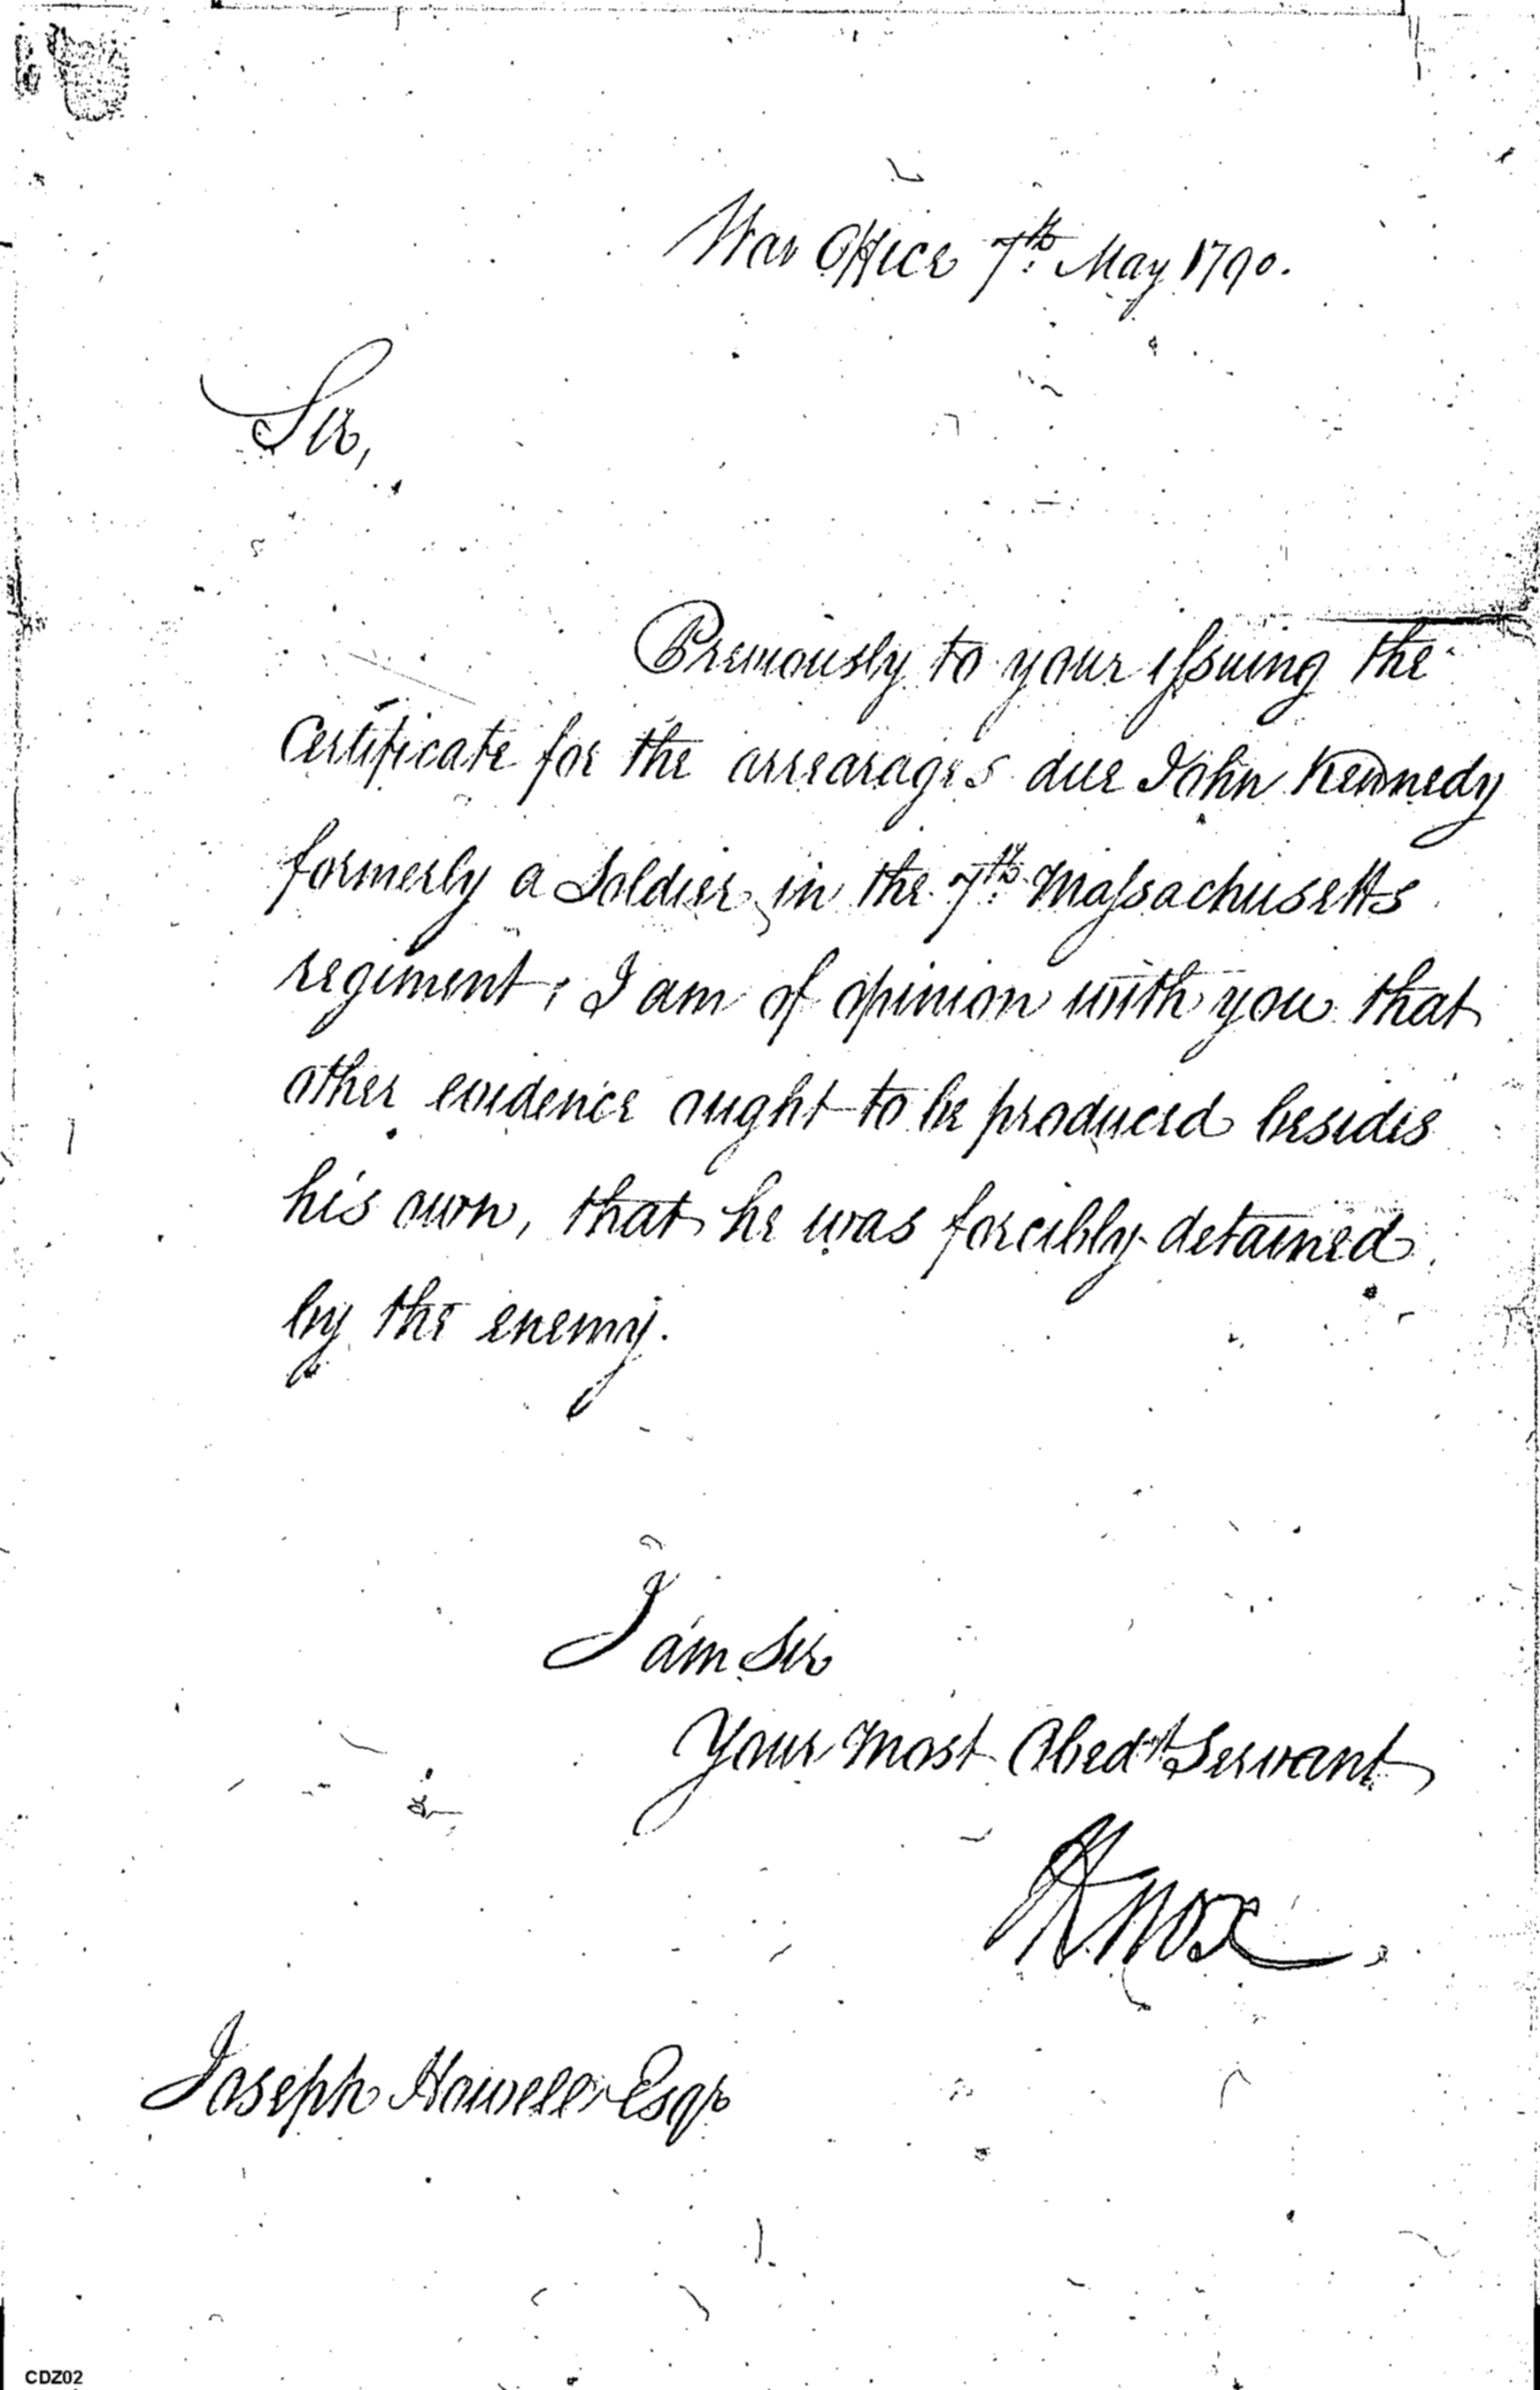 War Office 7th May 1790.
Sir,
Previously to your issuing the
Certificate for the arrearages due John Kennedy
formerly a Soldier in the 7th Massachusetts
regiment, I am of opinion with you that
other evidence ought to be produced besides
his own, that he was forcibly detained
by the enemy.
I am Sir
Your most Obedt Servant
HKnox
Joseph Howell Esqr
CDZ02